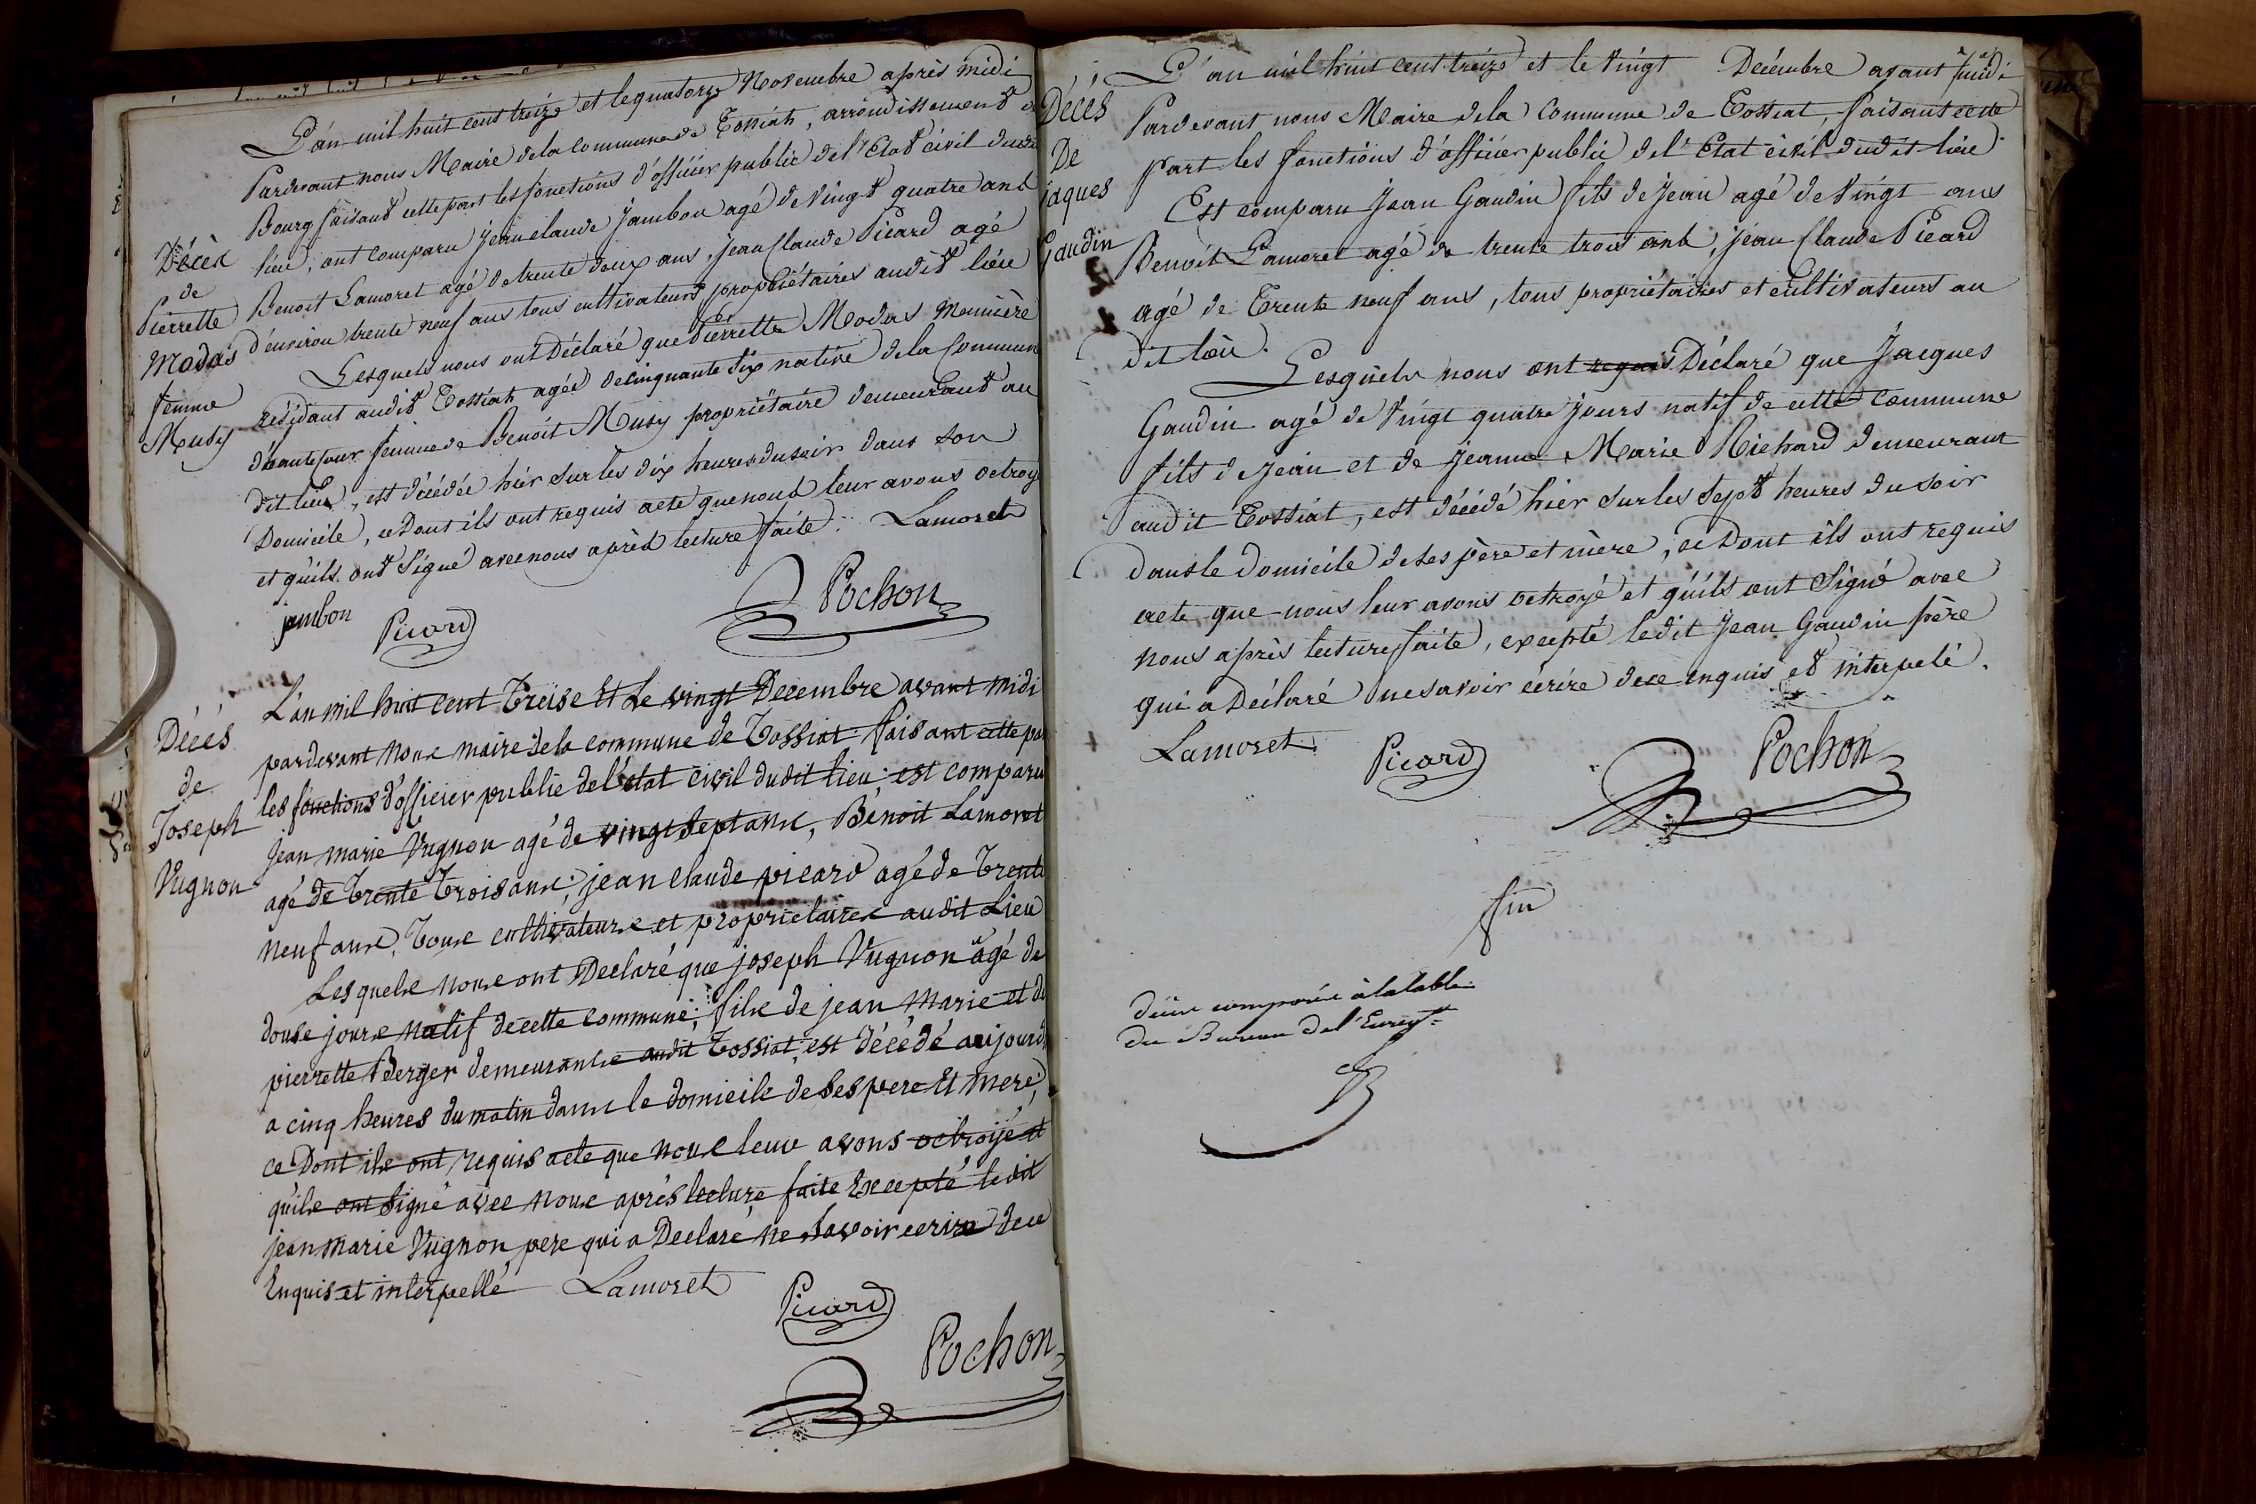 L'an mil huit cent treize et le quatorze Novembre après midi
Pardevant nous Maire de la commune de Tossiat, arrondissement de
Bourg faisant cette part les fonctions d'officier public de l'Etat civil dudit
lieu, ont comparu Jean claude Jambon agé de vingt quatre ans
Benoit Lamoret agé de trente deux ans, jean Claude Picard agé
d'environ trente neuf ans tous cultivateurs propriétaires audit lieu
Décès
de
Pierrette
Modas
femme
Musy
Lesquels nous ont Déclaré que Pierrette Modas
résidant audit Tossiat agée de cinquante six native de la Commune
femme de Benoit Musy propriétaire demeurant au
dit lieu, est décédée hier sur les dix heures du soir dans son
Domicile, ce Dont ils ont requis acte que nous leur avons octroyé
et qu'ils ont Signé avec nous après lecture faite. Lamoret
jambon Picard Pochon
Décés
de
Joseph
Vugnon
L'an mil huit cent Treise Et Le vingt Decembre avant midi
pardevant Nous maire de la commune de Tossiat faisant cette par
les fonctions d'officier public de l'état civil dudit lieu est comparu
Jean marie Vugnon agé de vingt Sept ans, Benoit Lamoret
agé de Trente Trois ans, jean claude picard agé de Trente
neuf ans, Tous cultivateurs et proprietaires audit Lieu
Lesquels nous ont Declaré que joseph Vugnon agé de
douse jours natif de cette commune; fils de jean Marie et de
pierrette Berger demeurants audit Tossiat, est décédé aujourd
a cinq heures du matin dans le domicile de ses pere Et mere,
ce Dont ils ont requis acte que nous leur avons octroijé et
qu'ils ont Signé avec nous aprés lecture faite Excepté ledit
jean marie Vugnon pere qui a Declaré ne Savoir ecrire de ce
Enquis et interpellé Lamoret
Picard
Pochon
Décés
De
jaques
Gaudin
L'an mil huit cent treize et le vingt Decembre avant midi
Pardevant nous Maire de la Commune de Tossiat, faisant cette
part les fonctions d'officier public de l'Etat civil dudit lieu
Est comparu Jean Gaudin fils de Jean agé de vingt ans
Benoit Lamoret agé de trente trois ans, Jean Claude Picard
agé de Trente neuf ans, tous propriétaires et cultivateurs au
dit lieu.
Lesquels nous ont requis Déclaré que Jacques
Gaudin agé de Vingt quatre jours natif de cette commune
fils de Jean et de Jeanne Marie Richard demeurant
audit Tossiat, est décédé hier sur les Sept heures du soir
dans le domicile de ses père et mère, ce Dont ils ont requis
acte que nous leur avons octroyé et qu'ils ont Signé avec
nous après lecture faite, excepté ledit Jean Gaudin père
qui a Déclaré ne savoir écrire de ce enquis et interpelé.
Lamoret Picard Pochon
fin
à la table
du Bureau de l'Enregt